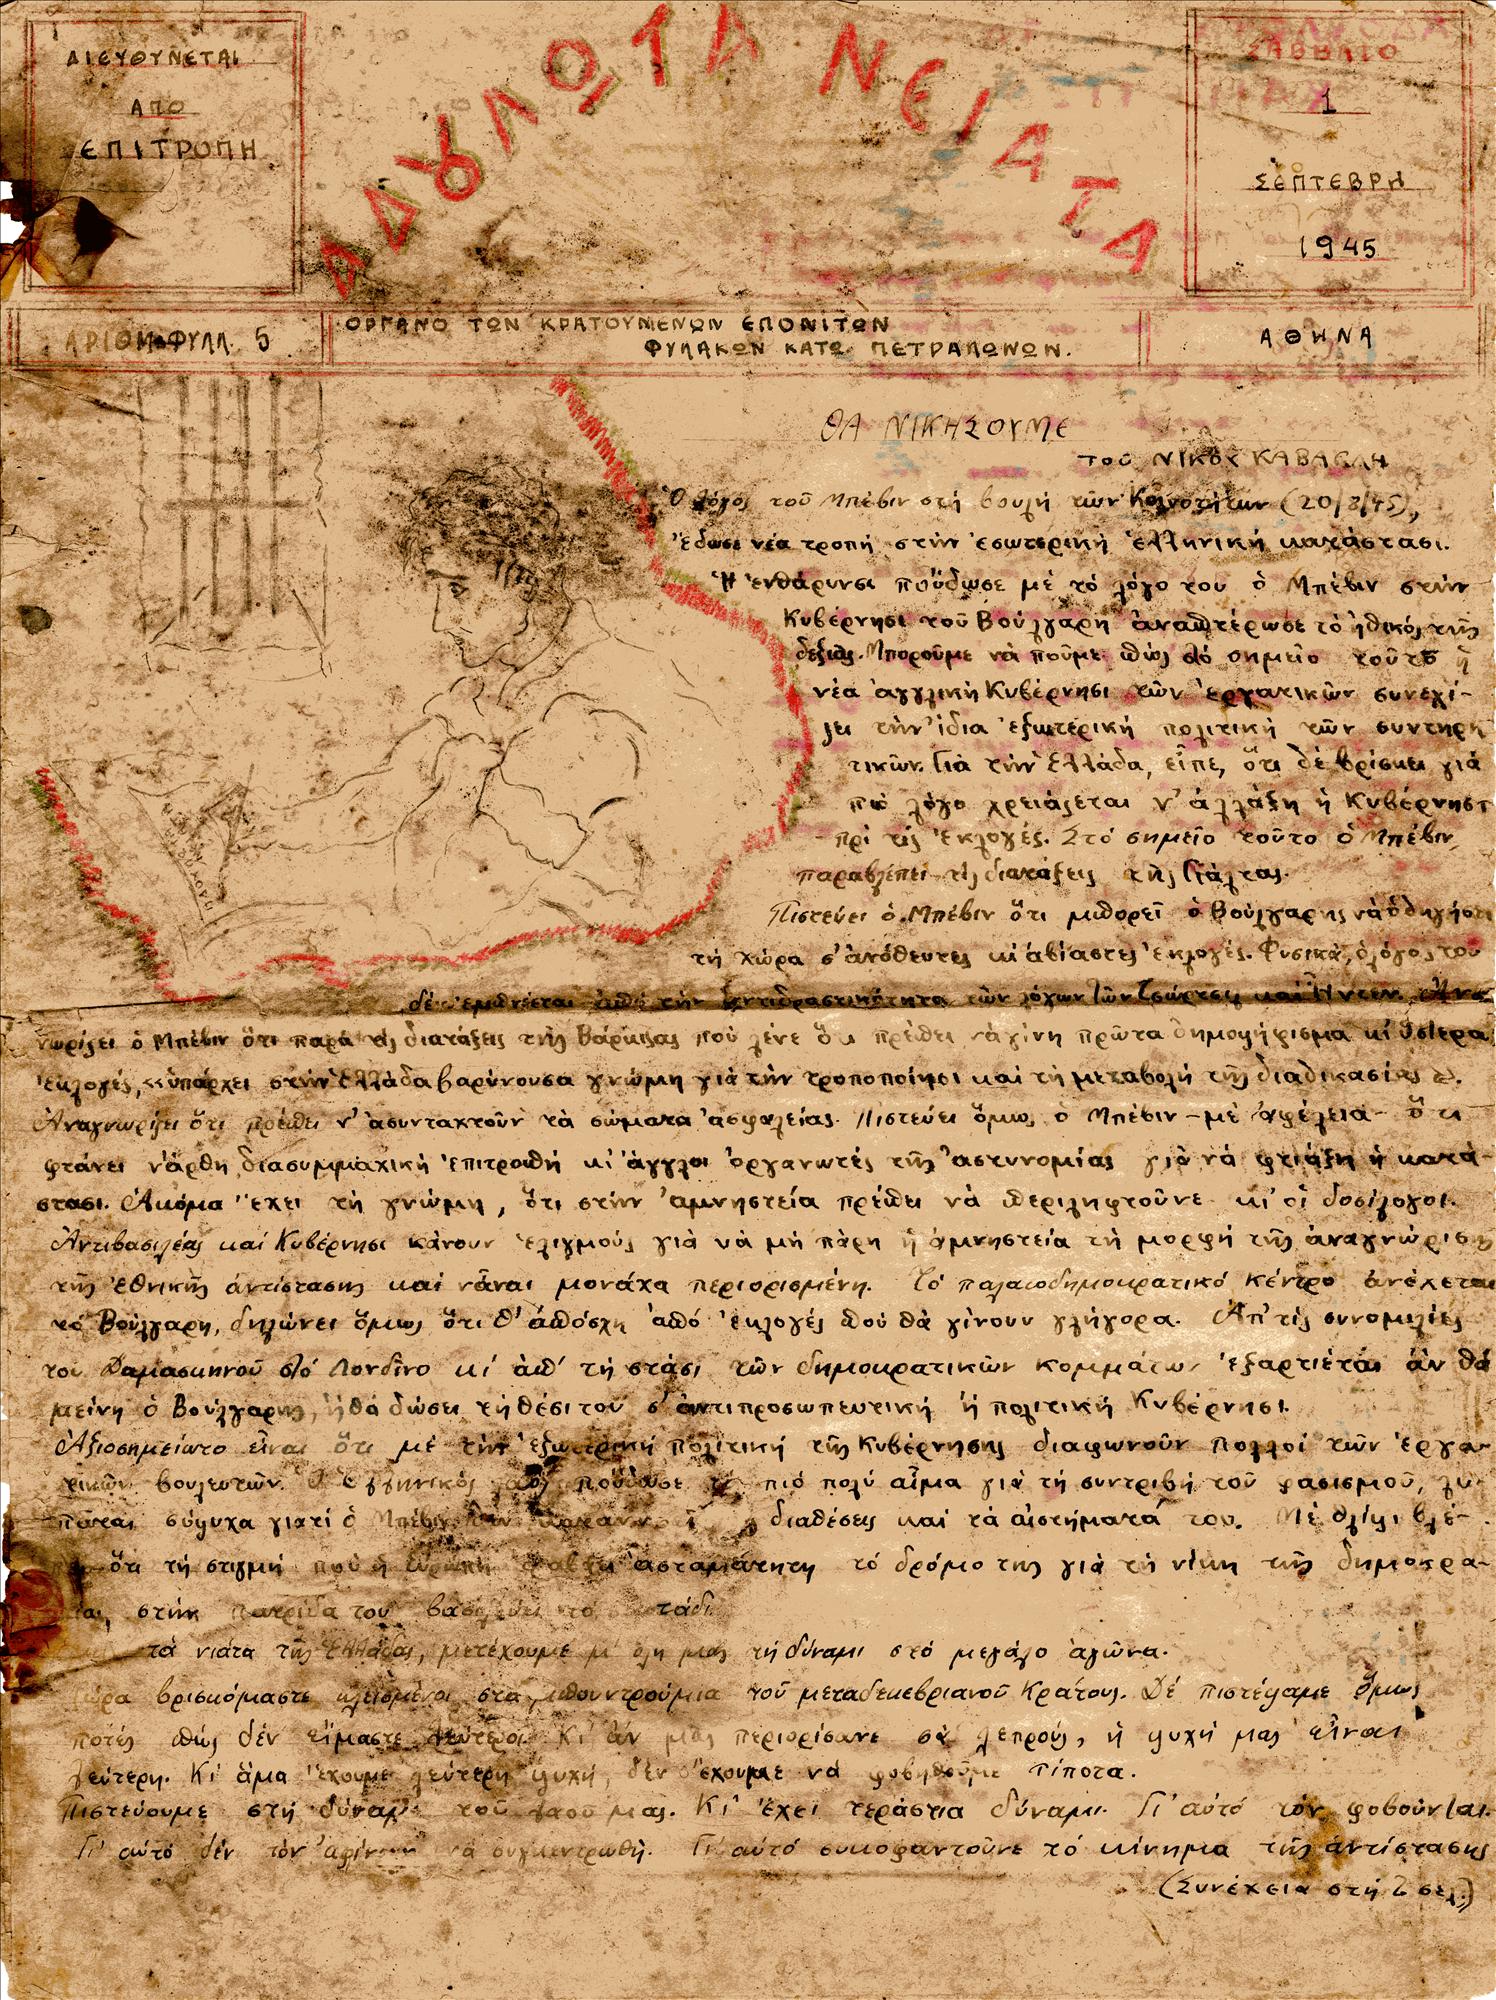 ΔΙΕΥΘΥΝΕΤΑΙ
ΑΠΟ
ΕΠΙΤΡΟΠΗ
ΑΔΟΥΛΩΤΑ ΝΕΙΑΤΑ
ΣΑΒΒΑΤΟ
1
ΣΕΠΤΕΒΡΗ
1945
ΑΡΙΘΜ. ΦΥΛΛ. 5
ΟΡΓΑΝΟ ΤΩΝ ΚΡΑΤΟΥΜΕΝΩΝ ΕΠΟΝΙΤΩΝ
ΦΥΛΑΚΩΝ ΚΑΤΩ ΠΕΤΡΑΛΩΝΩΝ.
ΑΘΗΝΑ
ΘΑ ΝΙΚΗΣΟΥΜΕ
τοῦ ΝΙΚΟΥ
Ὁ λόγος τοῦ Μπέβιν στή βουλή τῶν Κοινοτήτων (20/8/45),
ἔδωσε νέα τροπή στήν ἐσωτερική ἑλληνική κατάστασι.
Ἡ ἐνθάρυνσι πούδωσε μέ τό λόγο του ὁ Μπέβιν στήν
Κυβέρνησι τοῦ Βούλγαρη ἀναπτέρωσε τό ἠθικός τῆς
δεξιᾶς. Μποροῦμε νά ποῦμε πώς στό σημεῖο τοῦτο ἡ
νέα ἀγγλική Κυβέρνησι τῶν ἐργατικῶν συνεχί-
ζει τήν ἴδια ἐξωτερική πολιτική τῶν συντηρη
τικῶν. Γιά τήν Ἑλλάδα, εἶπε, ὅτι δέ βρίσκει γιά
πιό λόγο χρειάζεται ν' ἀλλάξη ἡ Κυβέρνησι
πρί τίς ἐκλογές. Στό σημεῖο τοῦτο ὁ Μπέβιν,
παραβλέπει τίς διατάξεις τῆς Γιάλτας.
Πιστεύει ὁ Μπέβιν ὅτι μπορεῖ ὁ Βούλγαρης νά ὁδηγήσει
τή χώρα σ' ἀνόθευτες κι' ἀβίαστες ἐκλογές. Φυσικά, ὁ λόγος του
δέν ἐμπνέεται ἀπό τήν ἀντιδραστικότητα τῶν λόγων τῶν Τσώρτσιλ καί Ἤντεν. Ἀνα
γνωρίζει ὁ Μπέβιν ὅτι παρά τίς διατάξεις τῆς Βάρκιζας πού λένε ὅτι πρέπει νά γίνη πρῶτα δημοψήφισμα κι' ὕστερα
ἐκλογές, «ὑπάρχει στήν Ἑλλάδα βαρύνουσα γνώμη γιά τήν τροποποίησι καί τή μεταβολή τῆς διαδικασίας».
Ἀναγνωρίζει ὅτι πρέπει ν' ἀσυνταχτοῦν τά σώματα ἀσφαλείας. Πιστεύει ὅμως ὁ Μπέβιν – μέ ἀφέλεια – ὅτι
φτάνει νἄρθη διασυμμαχική ἐπιτροπή κι' ἄγγλοι ὀργανωτές τῆς ἀστυνομίας γιά νά φτιάξη ἡ κατά-
στασι. Ἀκόμα ἔχει τή γνώμη, ὅτι στήν ἀμνηστεία πρέπει νά περιληφτοῦνε κι' οἱ δοσίλογοι.
Ἀντιβασιλέας καί Κυβέρνησι κάνουν ἑλιγμούς γιά νά μή πάρη ἡ ἀμνηστεία τή μορφή τῆς ἀναγνώρισης
τῆς ἐθνικῆς ἀντίστασης καί νἆναι μονάχα περιορισμένη. Τό παλαιοδημοκρατικό κέντρο ἀνέχεται
τό Βούλγαρη, δηλώνει ὅμως ὅτι θ' ἀπόσχη ἀπό ἐκλογές πού θά γίνουν γλήγορα. Ἀπ' τίς συνομιλίες
τοῦ Δαμασκηνοῦ στό Λονδῖνο κι' ἀπ' τή στάσι τῶν δημοκρατικῶν κομμάτων ἐξαρτιέται ἄν θά
μείνη ὁ Βούλγαρης, ἤ θά δώσει τή θέσι του σ' ἀντιπροσωπευτική ἤ πολιτική Κυβέρνησι.
Ἀξιοσημείωτο εἶναι ὅτι μέ τήν ἐξωτερική πολιτική τῆς Κυβέρνησης διαφωνοῦν πολλοί τῶν ἐργα-
τικῶν βουλευτῶν. Ὁ ἑλληνικός λαός πούδωσε τό πιό πολύ αἷμα γιά τή συντριβή τοῦ φασισμοῦ, λυ-
πᾶται σύψυχα γιατί ὁ Μπέβιν διαθέσεις καί τά αἰστήματά του. Μέ θλίψι βλέ-
πει ὅτι τή στιγμή πού ἡ Εὐρώπη ἀσταμάτητη τό δρόμο της γιά τή νίκη τῆς δημοκρα-
τίας, στήν πατρίδα του βασιλεύει τό
τά νιάτα τῆς Ἑλλάδας, μετέχουμε μ' ὅλη μας τή δύναμι στό μεγάλο ἀγῶνα.
Τώρα βρισκόμαστε κλεισμένοι στά μπουντρούμια τοῦ μεταδεκεβριανοῦ Κράτους. Δέ πιστέψαμε ὅμως
ποτές πώς δέν εἴμαστε λεύτεροι. Κι' ἄν μᾶς περιορίσανε σά λεπρούς, ἡ ψυχή μας εἶναι
λεύτερη. Κι' ἅμα ἔχουμε λεύτερη ψυχή, δέν ἔχουμε νά φοβηθοῦμε τίποτα.
Πιστεύουμε στή δύναμι τοῦ λαοῦ μας. Κι' ἔχει τεράστια δύναμι. Γι' αὐτό τόν φοβοῦνται.
Γι' αὐτό δέν τόν ἀφίνουν νά συγκεντρωθῆ. Γι' αὐτό συκοφαντοῦνε τό κίνημα τῆς ἀντίστασης
(Συνέχεια στή 2 σελ.)